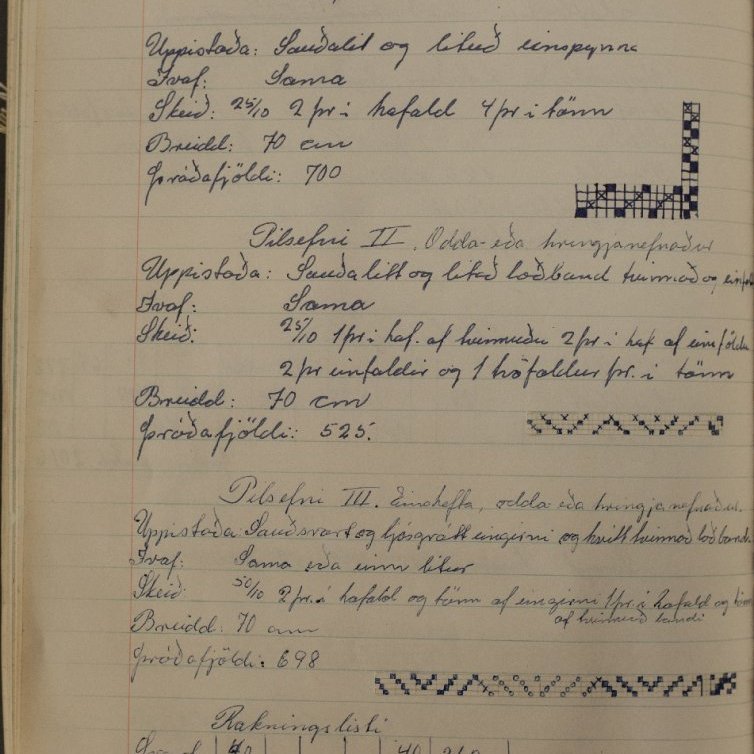 Uppistaða: Sauðalit og lituð einspynna
Ívaf: Sama
Skeið: 25/10 2 þr í hafald 4 þr í tönn
Breidd: 70 cm
Þráðafjöldi: 700
Pilsefni II. Odda- eða hringjavefnaður
Uppistaða: Sauðalitt og litað loðband tvinnað og einfalt
Ívaf: Sama
Skeið: 25/10 1 þr í haf. af tvinnuðu 2 þr í haf af einföldu
2 þr einfaldir og 1 tvöfaldur þr. í tönn
Breidd: 70 cm
Þráðafjöldi: 525.
Pilsefni III. Einskefta, odda eða hringjavefnaður.
Uppistaða Sauðsvart og ljósgrátt eingirni og hvítt tvinnað loðband
Ívaf: Sama eða einn litur
Skeið: 50/10 2 þr. í hafald og tönn af eingirni 1 þr. í hafald og tönn
af tvinnuð bandi
Breidd: 70 cm
Þráðafjöldi: 698
Rakningslisti
40 260